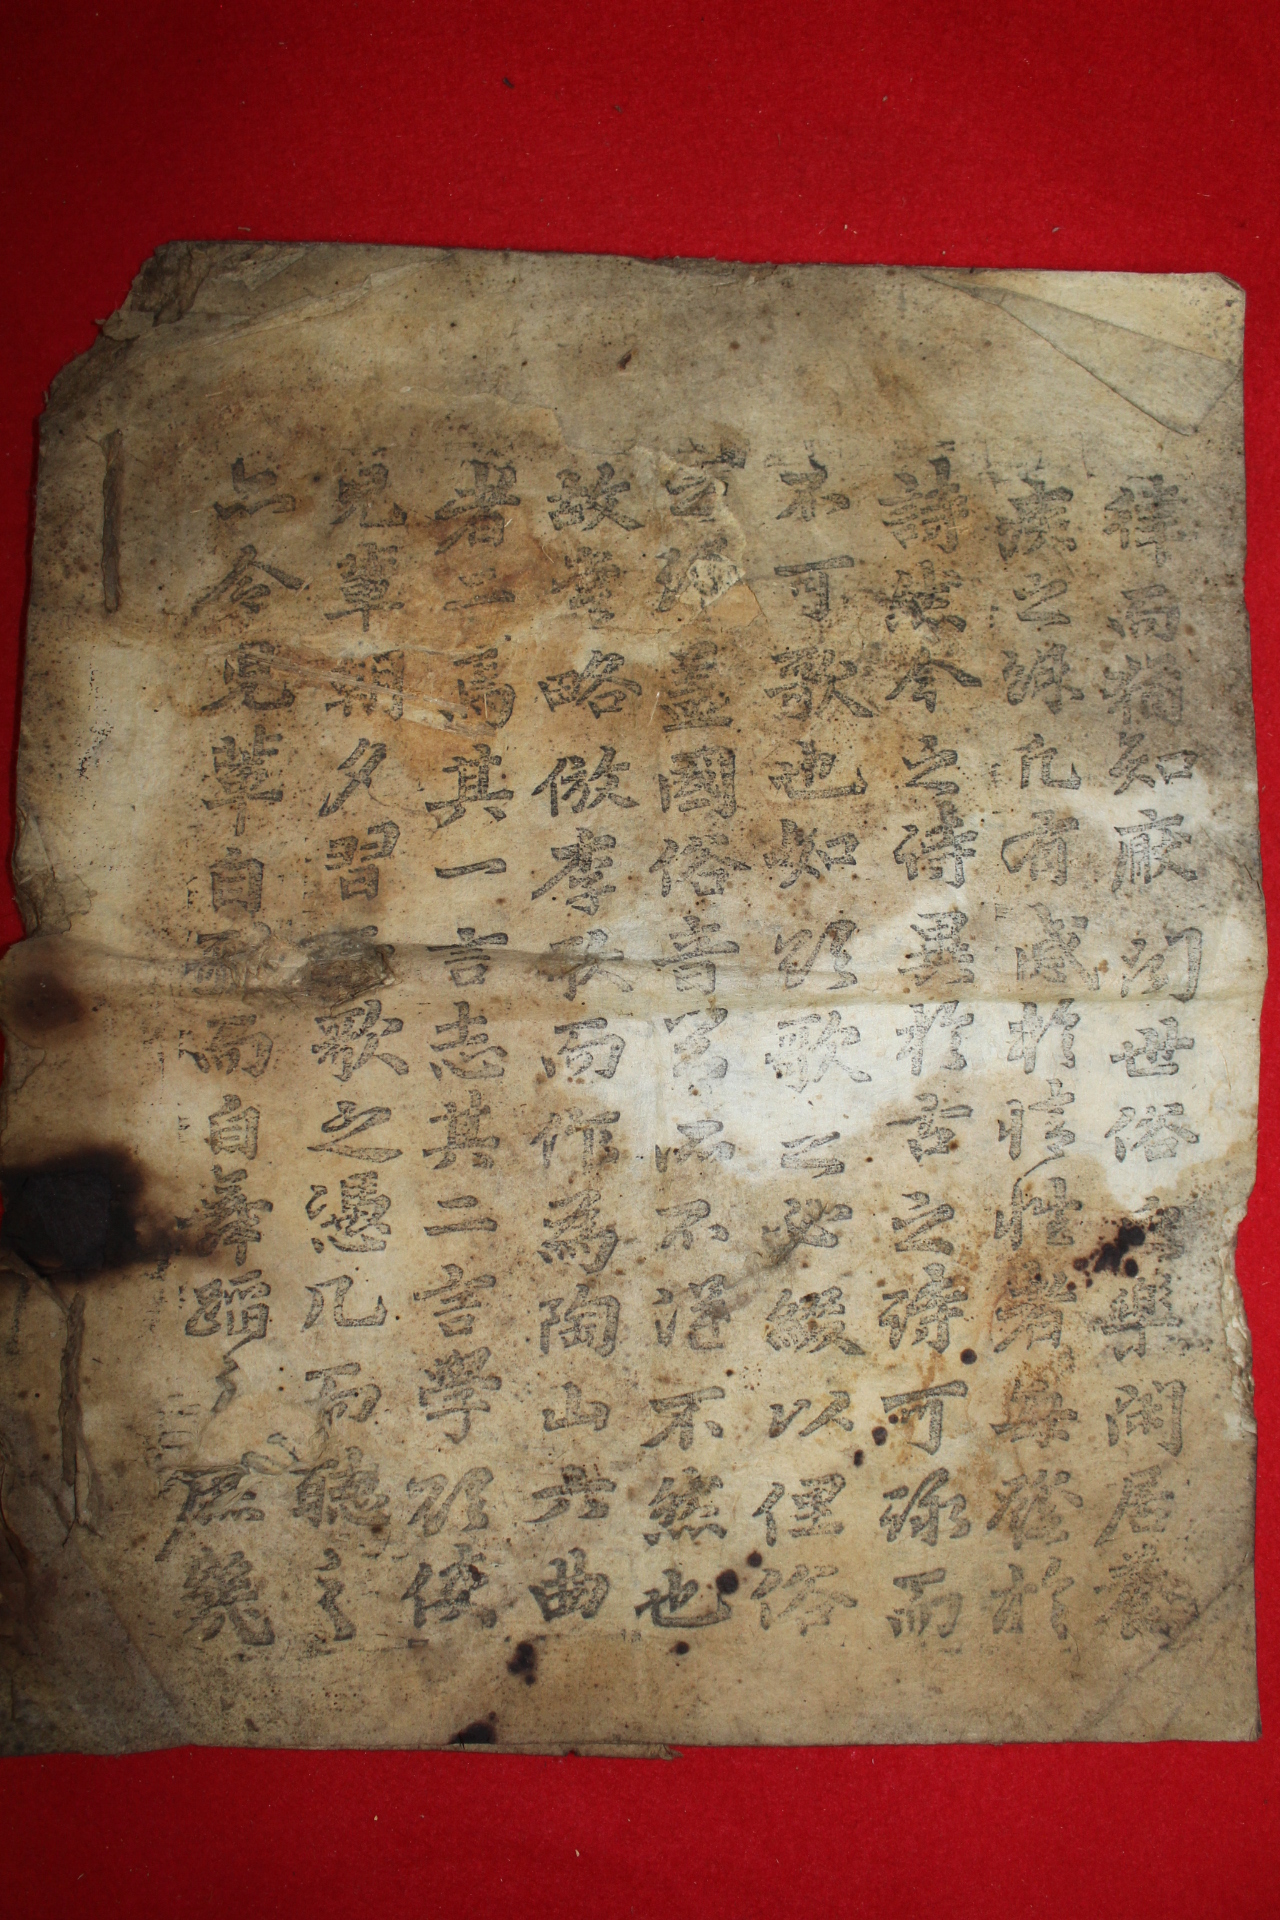 律而猶知厭聞世俗之樂閒居養
疾之餘凡有感於情性者每發於
詩然今之詩異於古之詩可詠而
不可歌也如欲歌之必綴以俚俗
之語盖國俗音節所不得不然也
故嘗略倣李歌而作爲陶山六曲
者二焉其一言志其二言學欲使
兒輩朝夕習而歌之憑几而聽之
亦令兒輩自歌而自舞蹈之庶幾